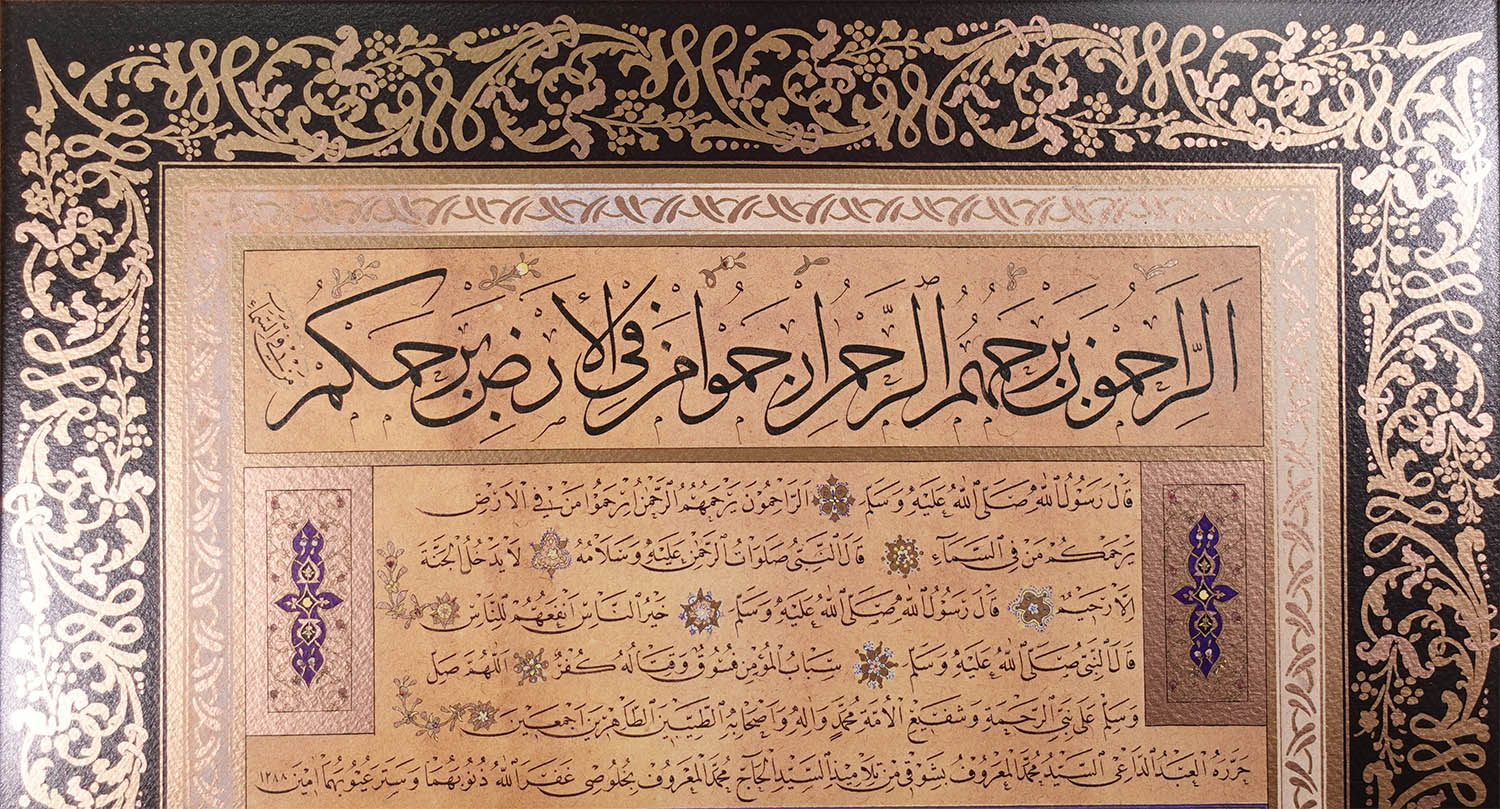 الراحمون يرحمهم الرحمن ارحموا من في الأرض يرحمكم
من في السماء
قَالَ رَسُولُ اللهِ صَلَّى اللهُ عَلَيْهِ وَسَلَّمَ اَلرَّاحِمُونَ يَرْحَمُهُمُ الرَّحْمٰنُ اِرْحَمُوا مَنْ فِي الْاَرْضِ
يَرْحَمْكُمْ مَنْ فِي السَّمَاءِ قَالَ النَّبِيُّ صَلَوَاتُ الرَّحْمٰنِ عَلَيْهِ وَسَلَامُهُ لَا يَدْخُلُ الْجَنَّةَ
اِلَّا رَحِيمٌ قَالَ رَسُولُ اللهِ صَلَّى اللهُ عَلَيْهِ وَسَلَّمَ خَيْرُ النَّاسِ اَنْفَعُهُمْ لِلنَّاسِ
قَالَ النَّبِيُّ صَلَّى اللهُ عَلَيْهِ وَسَلَّمَ سِبَابُ الْمُؤْمِنِ فُسُوقٌ وَقِتَالُهُ كُفْرٌ اَللّٰهُمَّ صَلِّ
وَسَلِّمْ عَلَى نَبِيِّ الرَّحْمَةِ وَشَفِيعِ الْاُمَّةِ مُحَمَّدٍ وَاٰلِهِ وَاَصْحَابِهِ الطَّيِّبِينَ الطَّاهِرِينَ اَجْمَعِينَ
حَرَّرَهُ الْعَبْدُ الدَّاعِي السَّيِّدُ مُحَمَّدُ الْمَعْرُوفُ بِشَوْقِي مِنْ تَلَامِيذِ السَّيِّدِ الْحَاجِّ مُحَمَّدِ الْمَعْرُوفِ بِخُلُوصِي غَفَرَ اللهُ ذُنُوبَهُمَا وَسَتَرَ عُيُوبَهُمَا اٰمِينَ ١٢٨٨